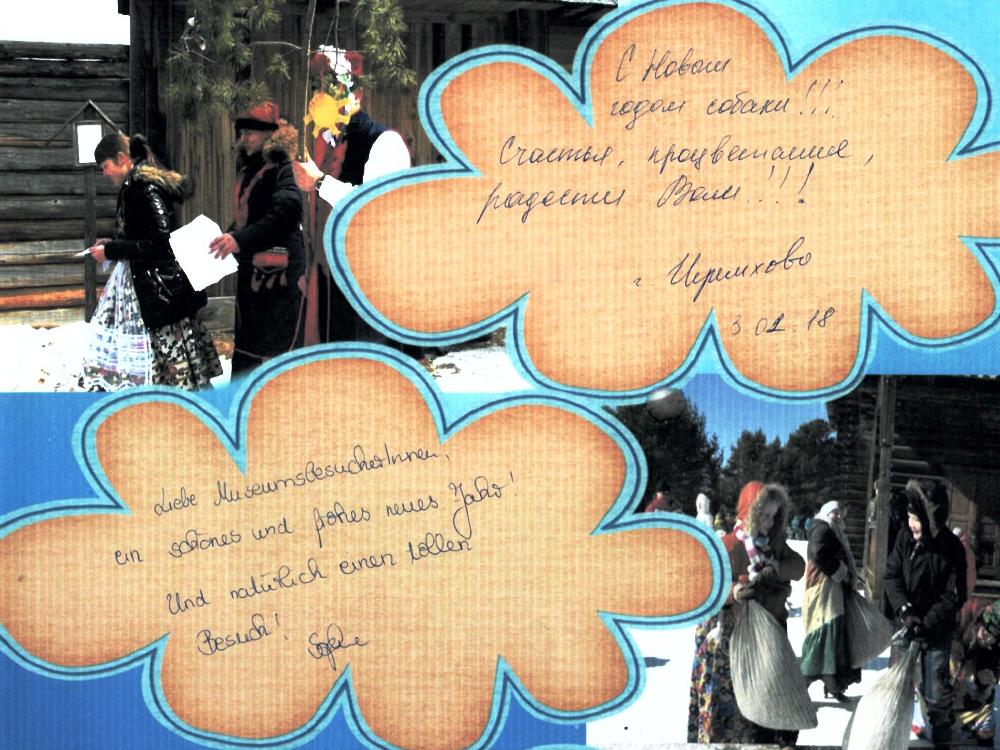 С Новым
годом собаки!!!
Счастья, процветания,
радости Вам!!!
г. Черемхово
3 01. 18
Liebe MuseumsbesucherInnen,
ein schönes und frohes neues Jahr!
Und natürlich einen tollen
Besuch! Sophie